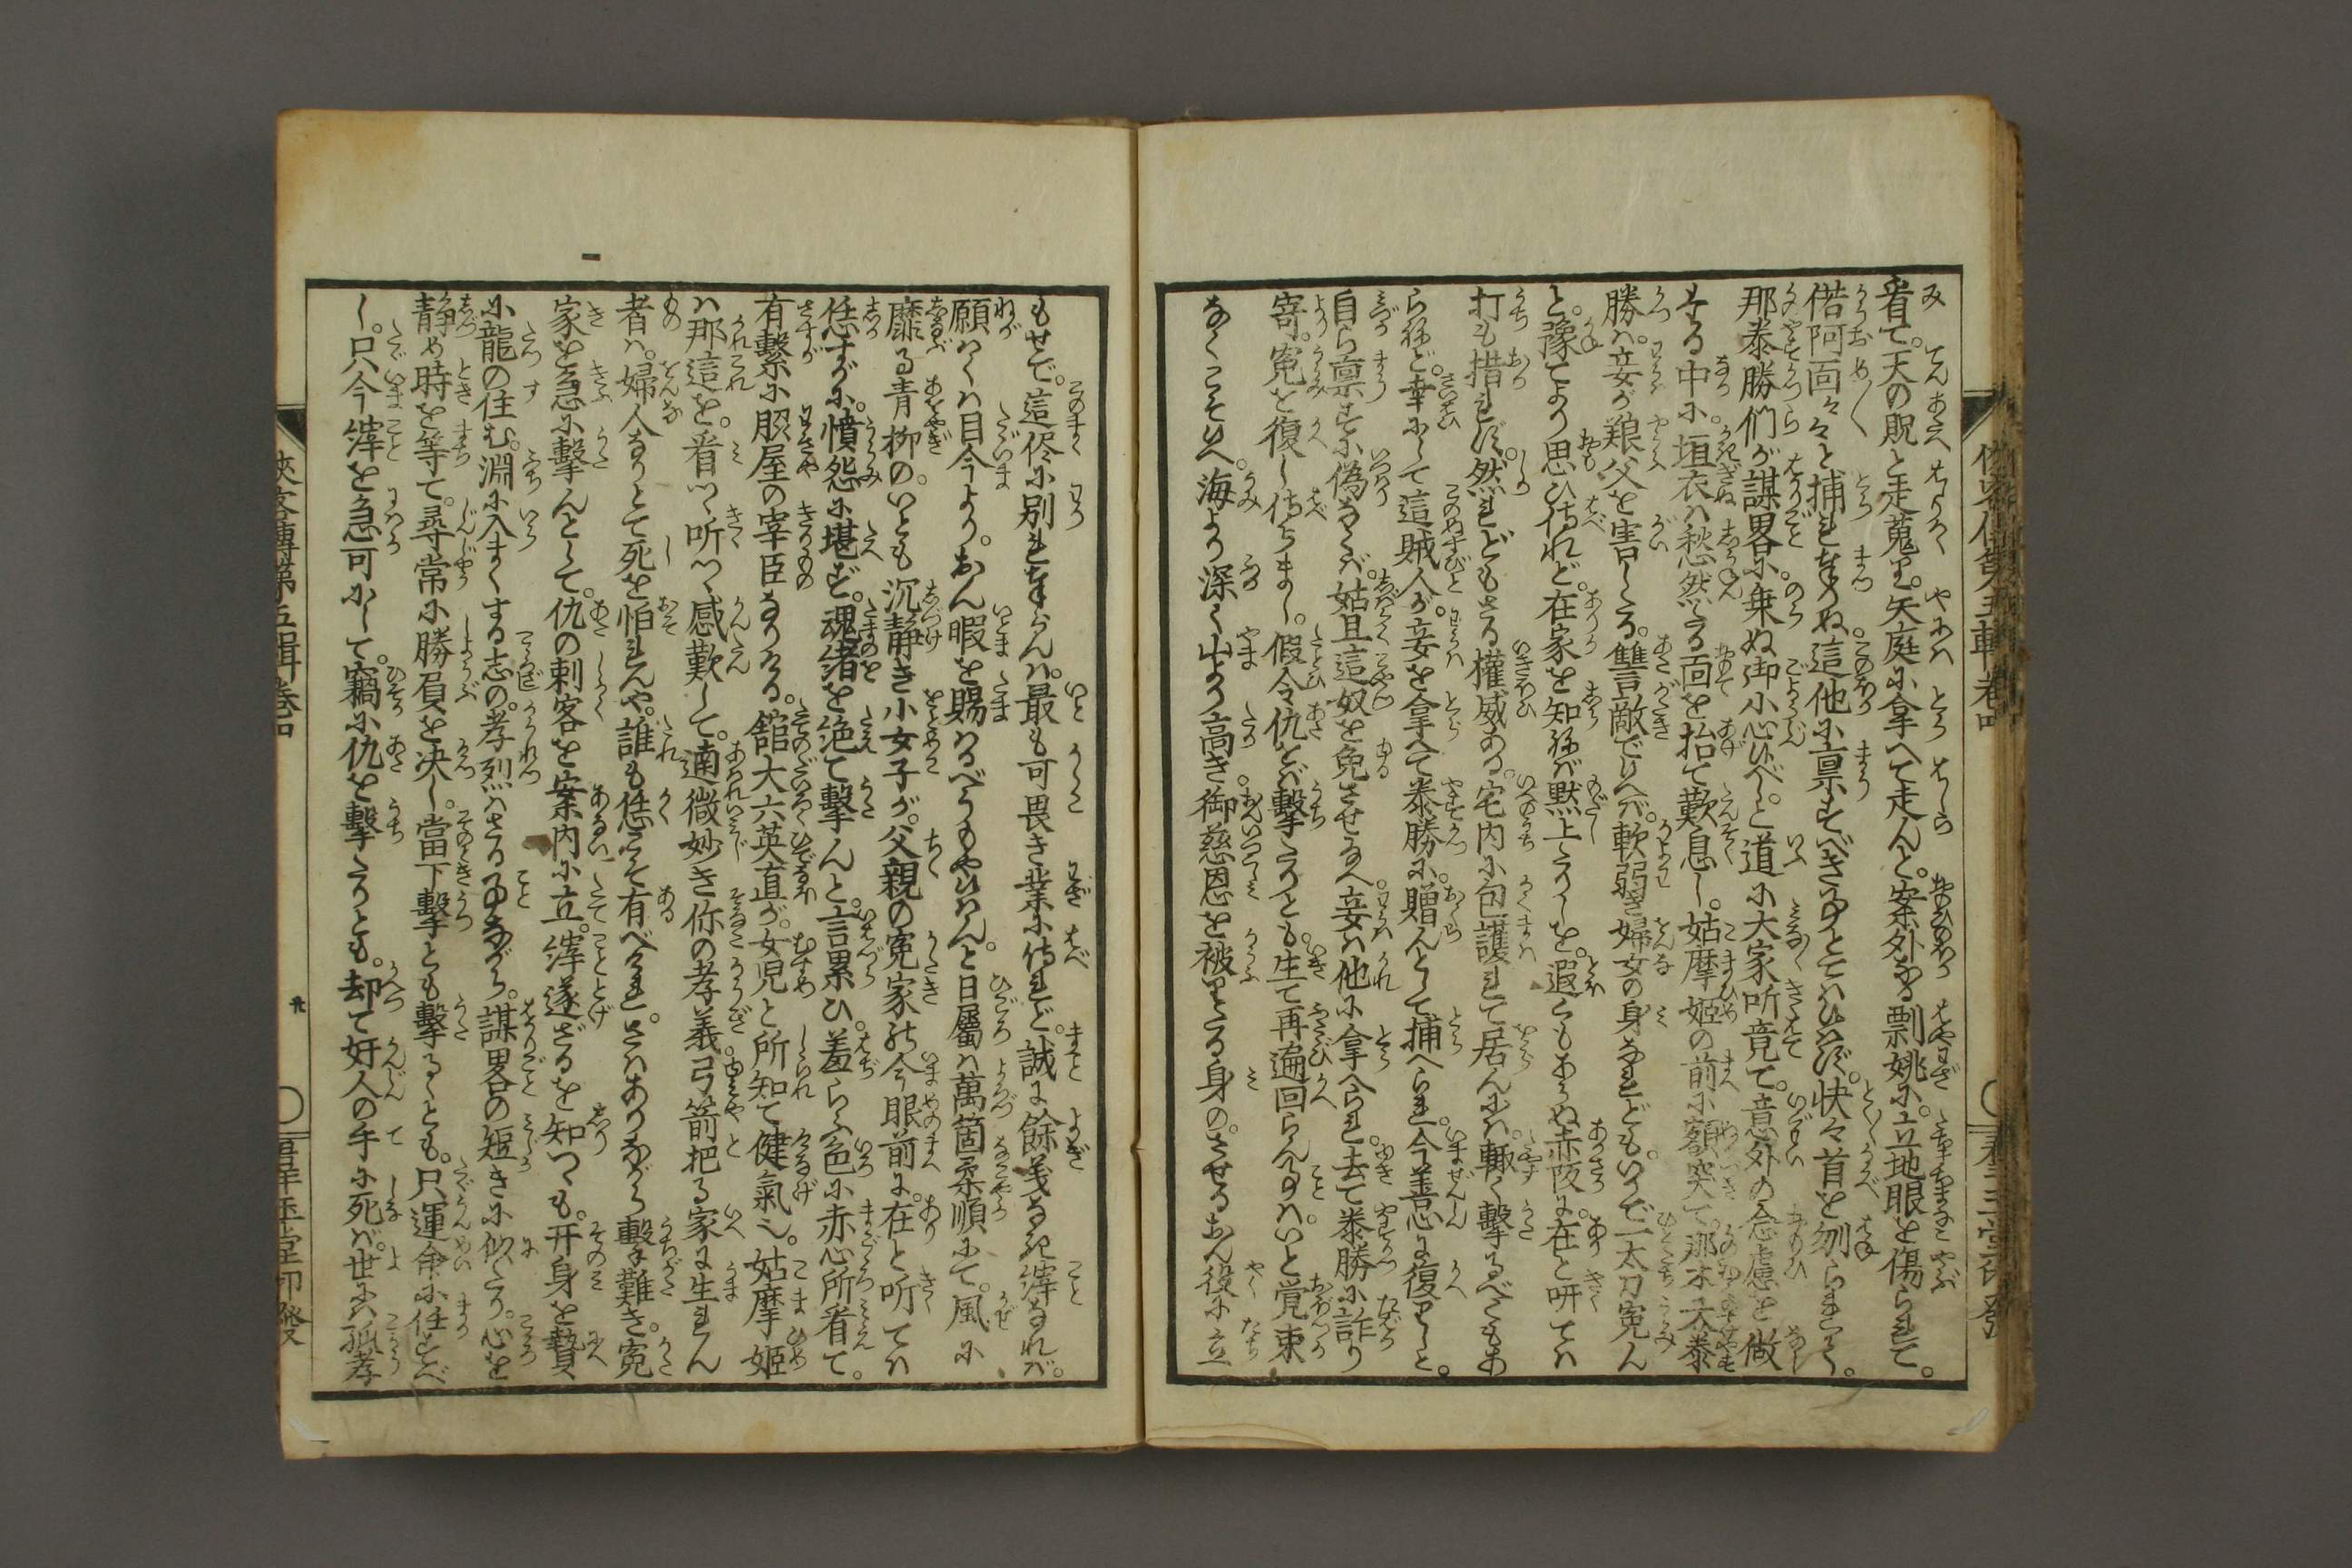 看て。天の賜と走蒐りて。矢庭に拿へて走んと。案外なる剽姚に。立地眼を傷られて。
偌阿面々々と捕れまゐりぬ。這他に禀すべき事とてはひはず。快々首を刎られよく。
那泰勝們が謀畧に。乗ぬ御小心ひべしと道に大家听竟て。意外の念慮を做
する中に。垣衣は愀然たる面を抬て歎息し。姑摩姫の前に額突て。那木大泰
勝は。妾が爺父を害しゝたる。讐言敵でひへば。軟弱き婦女の身なれども。いかで一太刀寃ん
と。豫てより思ひ侍れど。在家を知ねば黙止たりしを。遐くもあらぬ赤阪に。在と听ては
打も措れず。然れどもさる權威ある。宅内に包護れて居んには。輙く撃るべくもあ
らねど。幸にして這賊人が。妾を拿へて泰勝に。贈んとして捕へられ。今善心に復りしと。
自ら禀すに偽なくば。姑且這奴を免させ給へ。妾は他に拿へられ。去て泰勝に詐り
寄。寃を復し侍らまし。假令仇をば撃たりとも。生て再遍回らん事は。いと覚束
なくこそひへ。海より深く山より高き。御慈恩を被りたる身の。させるおん役に立
もせで。這侭に別れまゐらんは。最も可畏き業に侍れど。誠に餘義なき縡なれば。
願くは目今より。おん暇を賜はるべうもやひはん。と日屬は萬箇柔順にて。風に
靡る青柳の。いとも沉静き小女子が。父親の寃家の今眼前に。在と听ては
恁すがに。憤怨に堪ず。魂緒を絶て撃んと。言累ひ。羞らふ色に赤心所看て。
有繋に服屋の宰臣なりける。舘大六英直が。女児と所知て健氣也。姑摩姫
は那這を。看つ听つ感歎して。遖微妙き你の孝義。弓箭把る家に生れん
者は。婦人なりとて死を怕れんや。誰も恁こそ有べけれ。さはありながら撃難き。寃
家を急に撃んとして。仇の刺客を案内に立。縡遂ざるを知つゝも。开身を贄
に龍の住む。淵に入まくする志の。孝烈はさる事ながら。謀畧の短きに似たり。心を
静め時を等て。尋常に勝負を决し。當下撃とも撃るゝとも。只運命に任すべ
し。只今縡を急可にして。竊に仇を撃たりとも。却て奸人の手に死ば。世には孤孝
俠客傳第五輯巻四